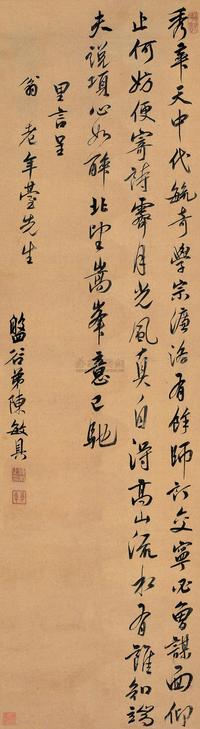 秀萃天中代毓奇學宗濂洛有餘師訂交寧必曾謀面仰
止何妨便寄詩霽月光風真自得高山流水有誰知端
夫說項心如醉北望嵩峯意已馳
里言呈
翁老年臺先生
盤谷弟陳敏具